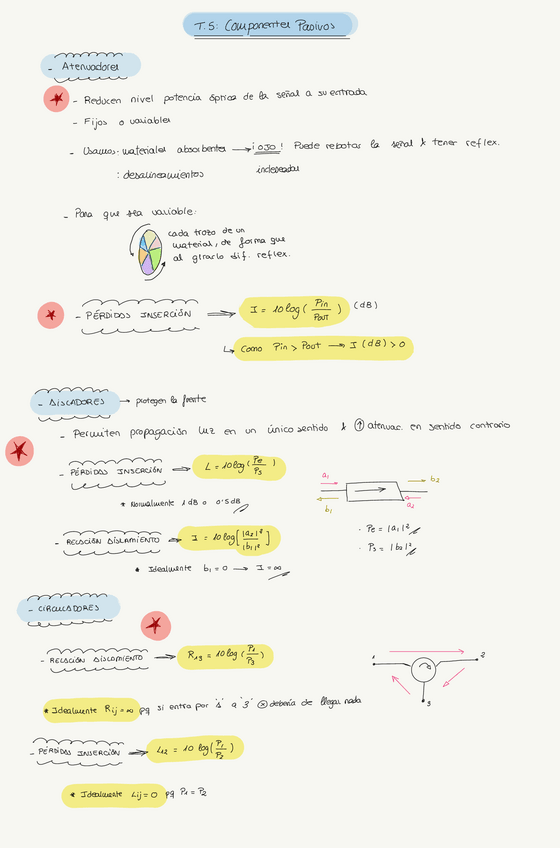 T.5: Componentes Pasivos
- Atenuadores
- Reducen nivel potencia óptica de la señal a su entrada
- Fijos o variables
- Usamos: materiales absorbentes → ¡OJO! Puede rebotar la señal & tener reflex. indeseada
: desalineamientos
- Para que sea variable:
cada trozo de un
material, de forma que
al girarlo dif. reflex.
- PÉRDIDAS INSERCIÓN ⇒ I = 10 log (Pin/Pout) (dB)
↳ Como Pin > Pout → I (dB) > 0
- AISLADORES → protegen la fuente
- Permiten propagación luz en un único sentido & ↑ atenuac. en sentido contrario
- PÉRDIDAS INSERCIÓN ⇒ L = 10 log (Pe/Ps)
* Normalmente 1 dB o 0'5 dB
a1
b2
b1
a2
· Pe = |a1|²
· Ps = |b2|²
- RELACIÓN AISLAMIENTO ⇒ I = 10 log [|a2|²/|b1|²]
* Idealmente b1 = 0 → I = ∞
- CIRCULADORES
- RELACIÓN AISLAMIENTO → R13 = 10 log (P1/P3)
1
2
3
* Idealmente Rij = ∞ pq si entra por '1' a '3' ⊗ debería de llegar nada
- PÉRDIDAS INSERCIÓN ⇒ L12 = 10 log (P1/P2)
* Idealmente Lij = 0 pq P1 = P2